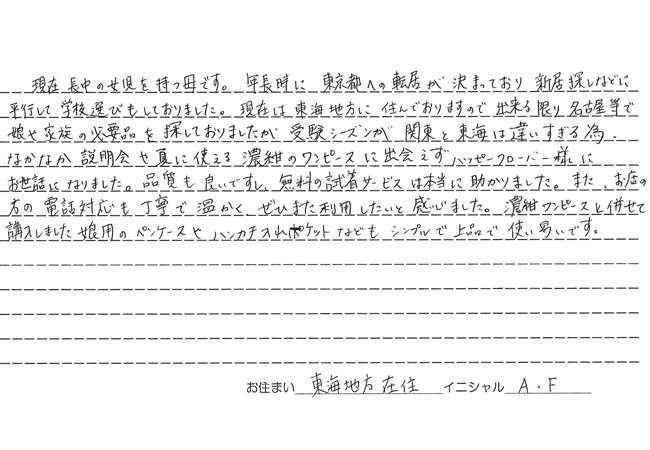 現在 年中の女児を持つ母です。年長時に 東京都への転居が 決まっており 新居探しなどに
平行して 学校選びもしておりました。現在は 東海地方に 住んでおりますので 出来る限り 名古屋等で
娘や家族の必要品を 探しておりましたが 受験シーズンが 関東と東海は違いすぎる為、
なかなか 説明会や夏に使える 濃紺のワンピースに出会えず ハッピークローバー様に
お世話になりました。品質も良いですし、無料の試着サービスは本当に助かりました。また、お店の
方の電話対応も 丁寧で 温かく、ぜひまた利用したいと 感じました。濃紺ワンピースと併せて
購入しました 娘用の ペンケースや ハンカチ入れポケット なども シンプルで 上品で 使い易いです。
お住まい 東海地方在住 イニシャル A・F